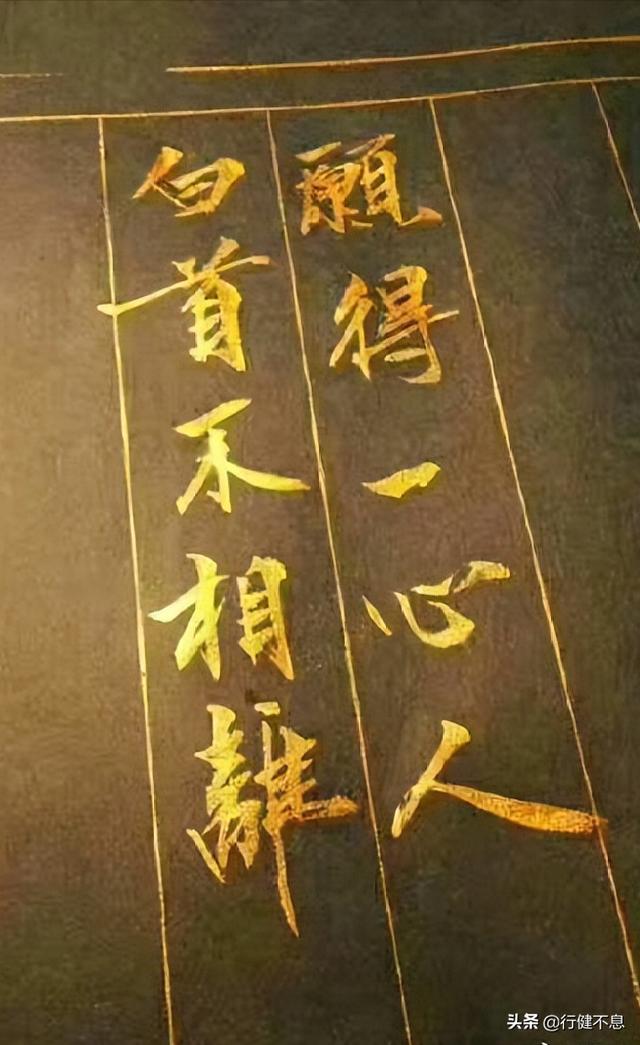 願得一心人
白首不相離
头条 @行健不息